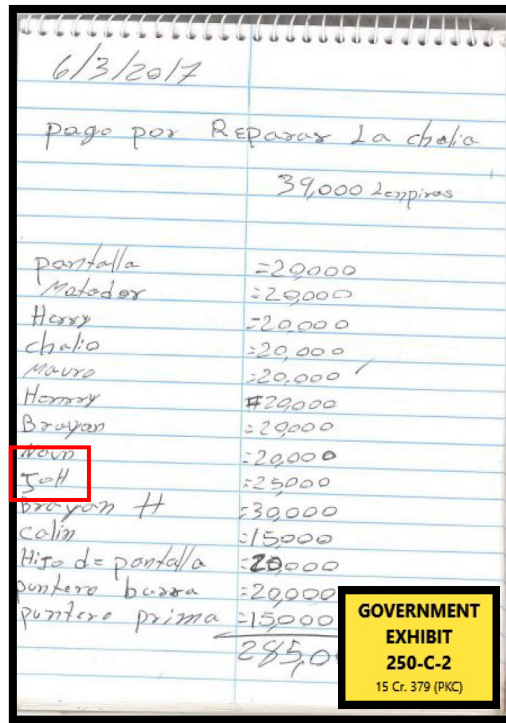 6/3/2017
pago por Reparar La chalia
39,000 Lenpiras
pantalla =20,000
Matador =20,000
Harry =20,000
chalio =20,000
Mauro =20,000
Henrry #20,000
Brayan =20,000
=20,000
JoH =25,000
Brayan H =30,000
Calin =15,000
Hijo de pantalla =20,000
puntero barra =20,000
puntero prima =15,000
285,0
GOVERNMENT
EXHIBIT
250-C-2
15 Cr. 379 (PKC)